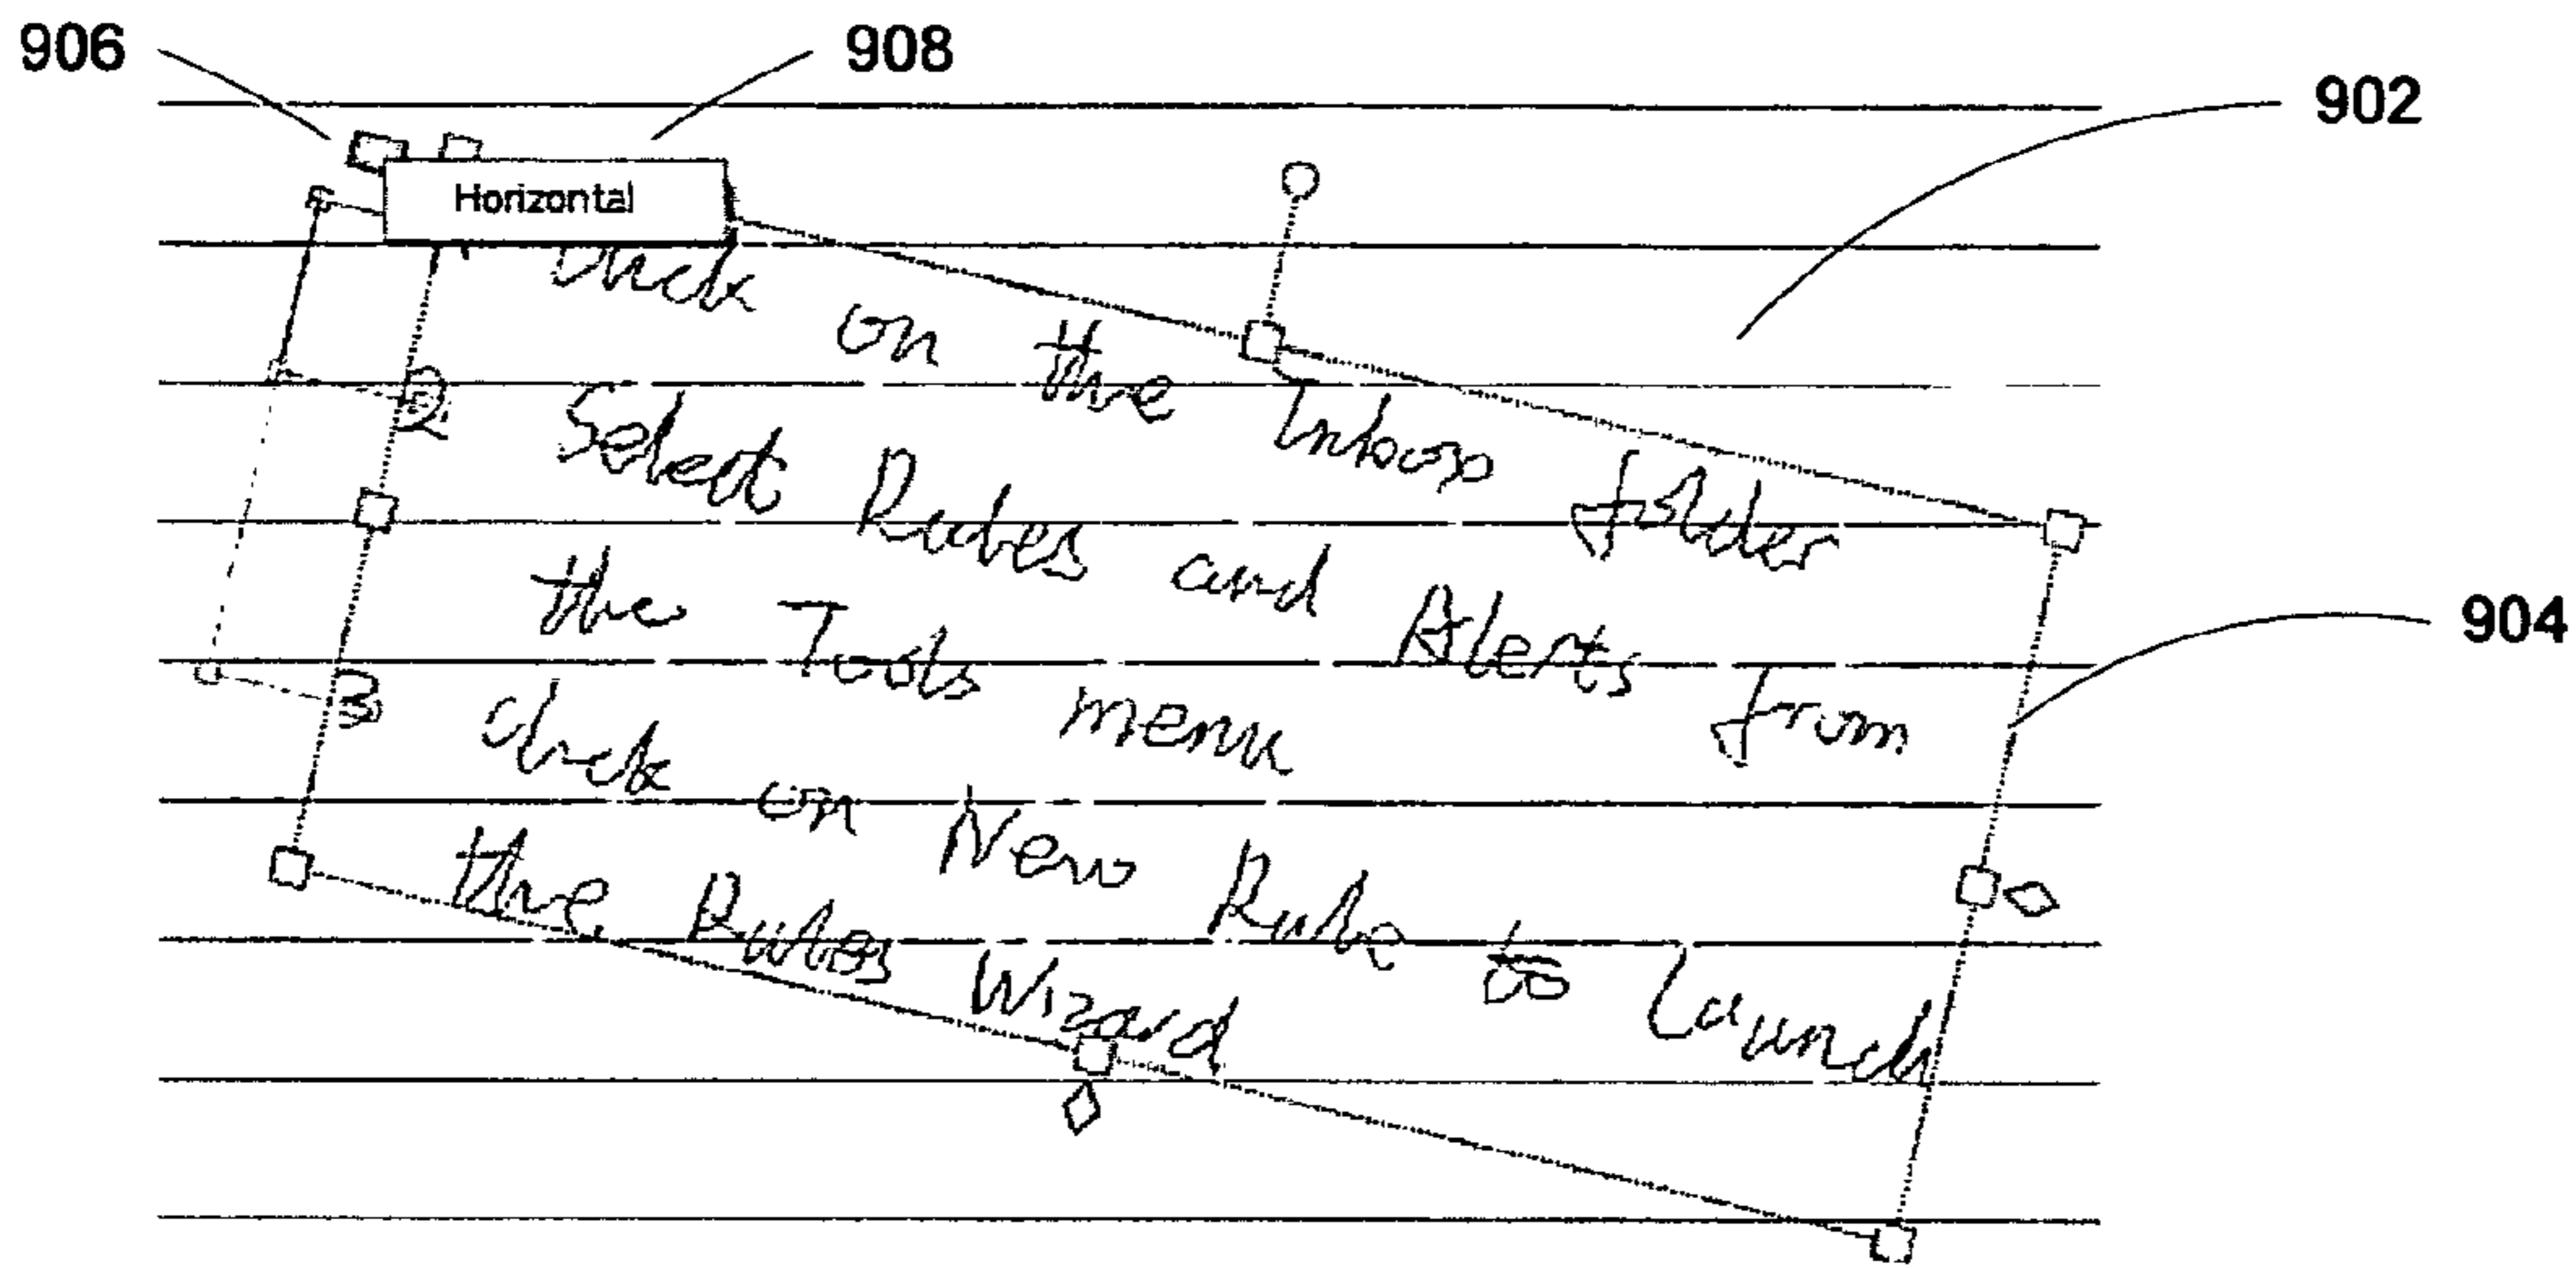 906 908
902
Horizontal
on the Inbox folder
2 Select Rules and Alerts from
904
the Tools menu
3 click on New Rule to launch
the Rules Wizard